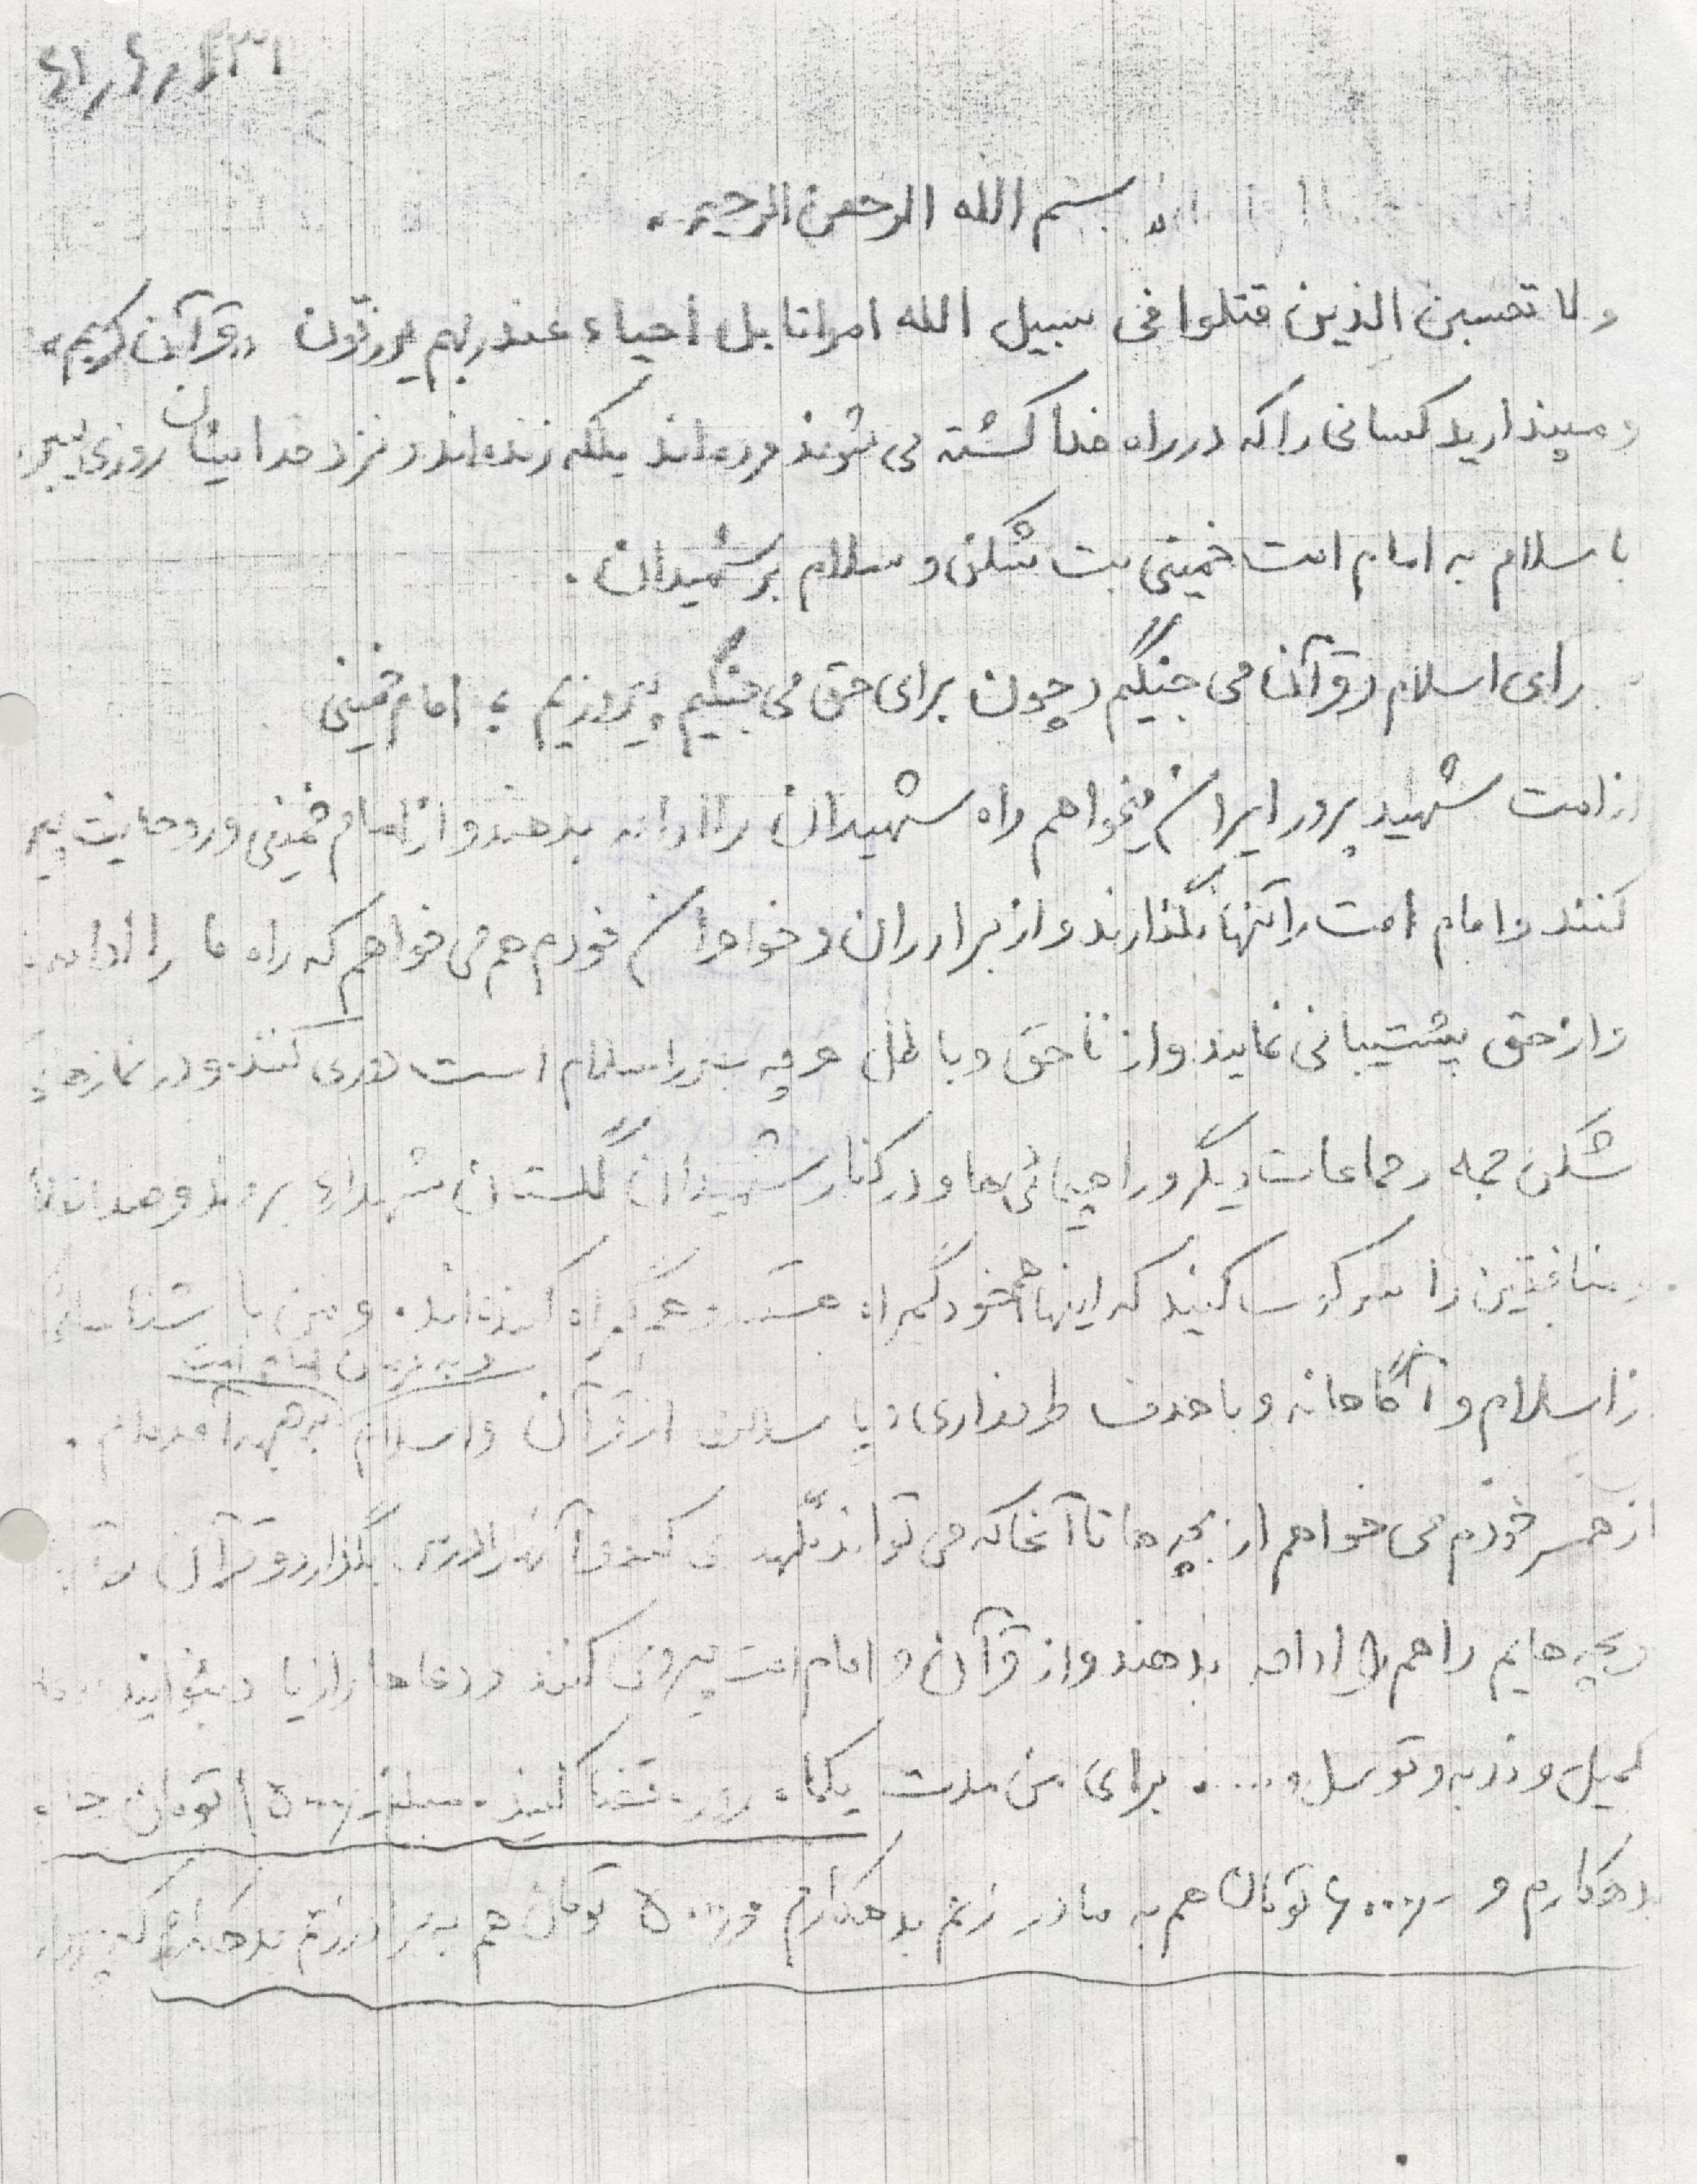 بسم الله الرحمن الرحیم
ولا تحسبن الذین قتلوا فی سبیل الله امواتا بل احیاء عند ربهم یرزقون «قرآن کریم»
و مپندارید کسانی را که در راه خدا کشته می شوند مرده‌اند بلکه زنده‌اند و نزد خدایشان روزی
با سلام به امام امت خمینی بت شکن و سلام بر شهیدان .
رای اسلام و قرآن می جنگیم و چون برای حق می جنگیم پیروزیم امام خمینی
از امت شهید پرور ایران میخواهم راه شهیدان را ادامه بدهند و از امام خمینی و روحانیت
کنند و امام امت را تنها نگذارند و از برادران و خواهران خودم هم می خواهم که راه ما را ادامه
و از حق پشتیبانی نمایند و از نا حق و باطل هر چه بر اسلام است دوری کنند و در نمازهای
شکن جمعه و جماعات دیگر و راهپیمائی ها و در کنار شهیدان گلستان شهداء بروند و
منافقین را سرکوب کنید که اینها هم خود گمراه هستند و هم گمراه کننده‌اند . و من با شناسائی
و به فرمان امام امت
از اسلام و آگاهانه و با هدف طرفداری و پاسداری از قرآن و اسلام به جبهه آمده‌ام .
از همسر خودم می خواهم از بچه ها تا آنجا که می تواند نگهداری کند و آنها را بگذارد و قرآن
و بچه هایم راهم را ادامه بدهند و از قرآن و امام امت پیروی کنند و دعاها را زیاد بخوانند
کمیل و ندبه و توسل و .... برای من مدت یکماه روزه قضا کنید . مبلغ ۱۵۰۰۰ تومان
بدهکارم و ۶۰۰۰ تومان هم به مادر زنم بدهکارم و ۵۰۰۰ تومان هم به برادر زنم بدهکارم